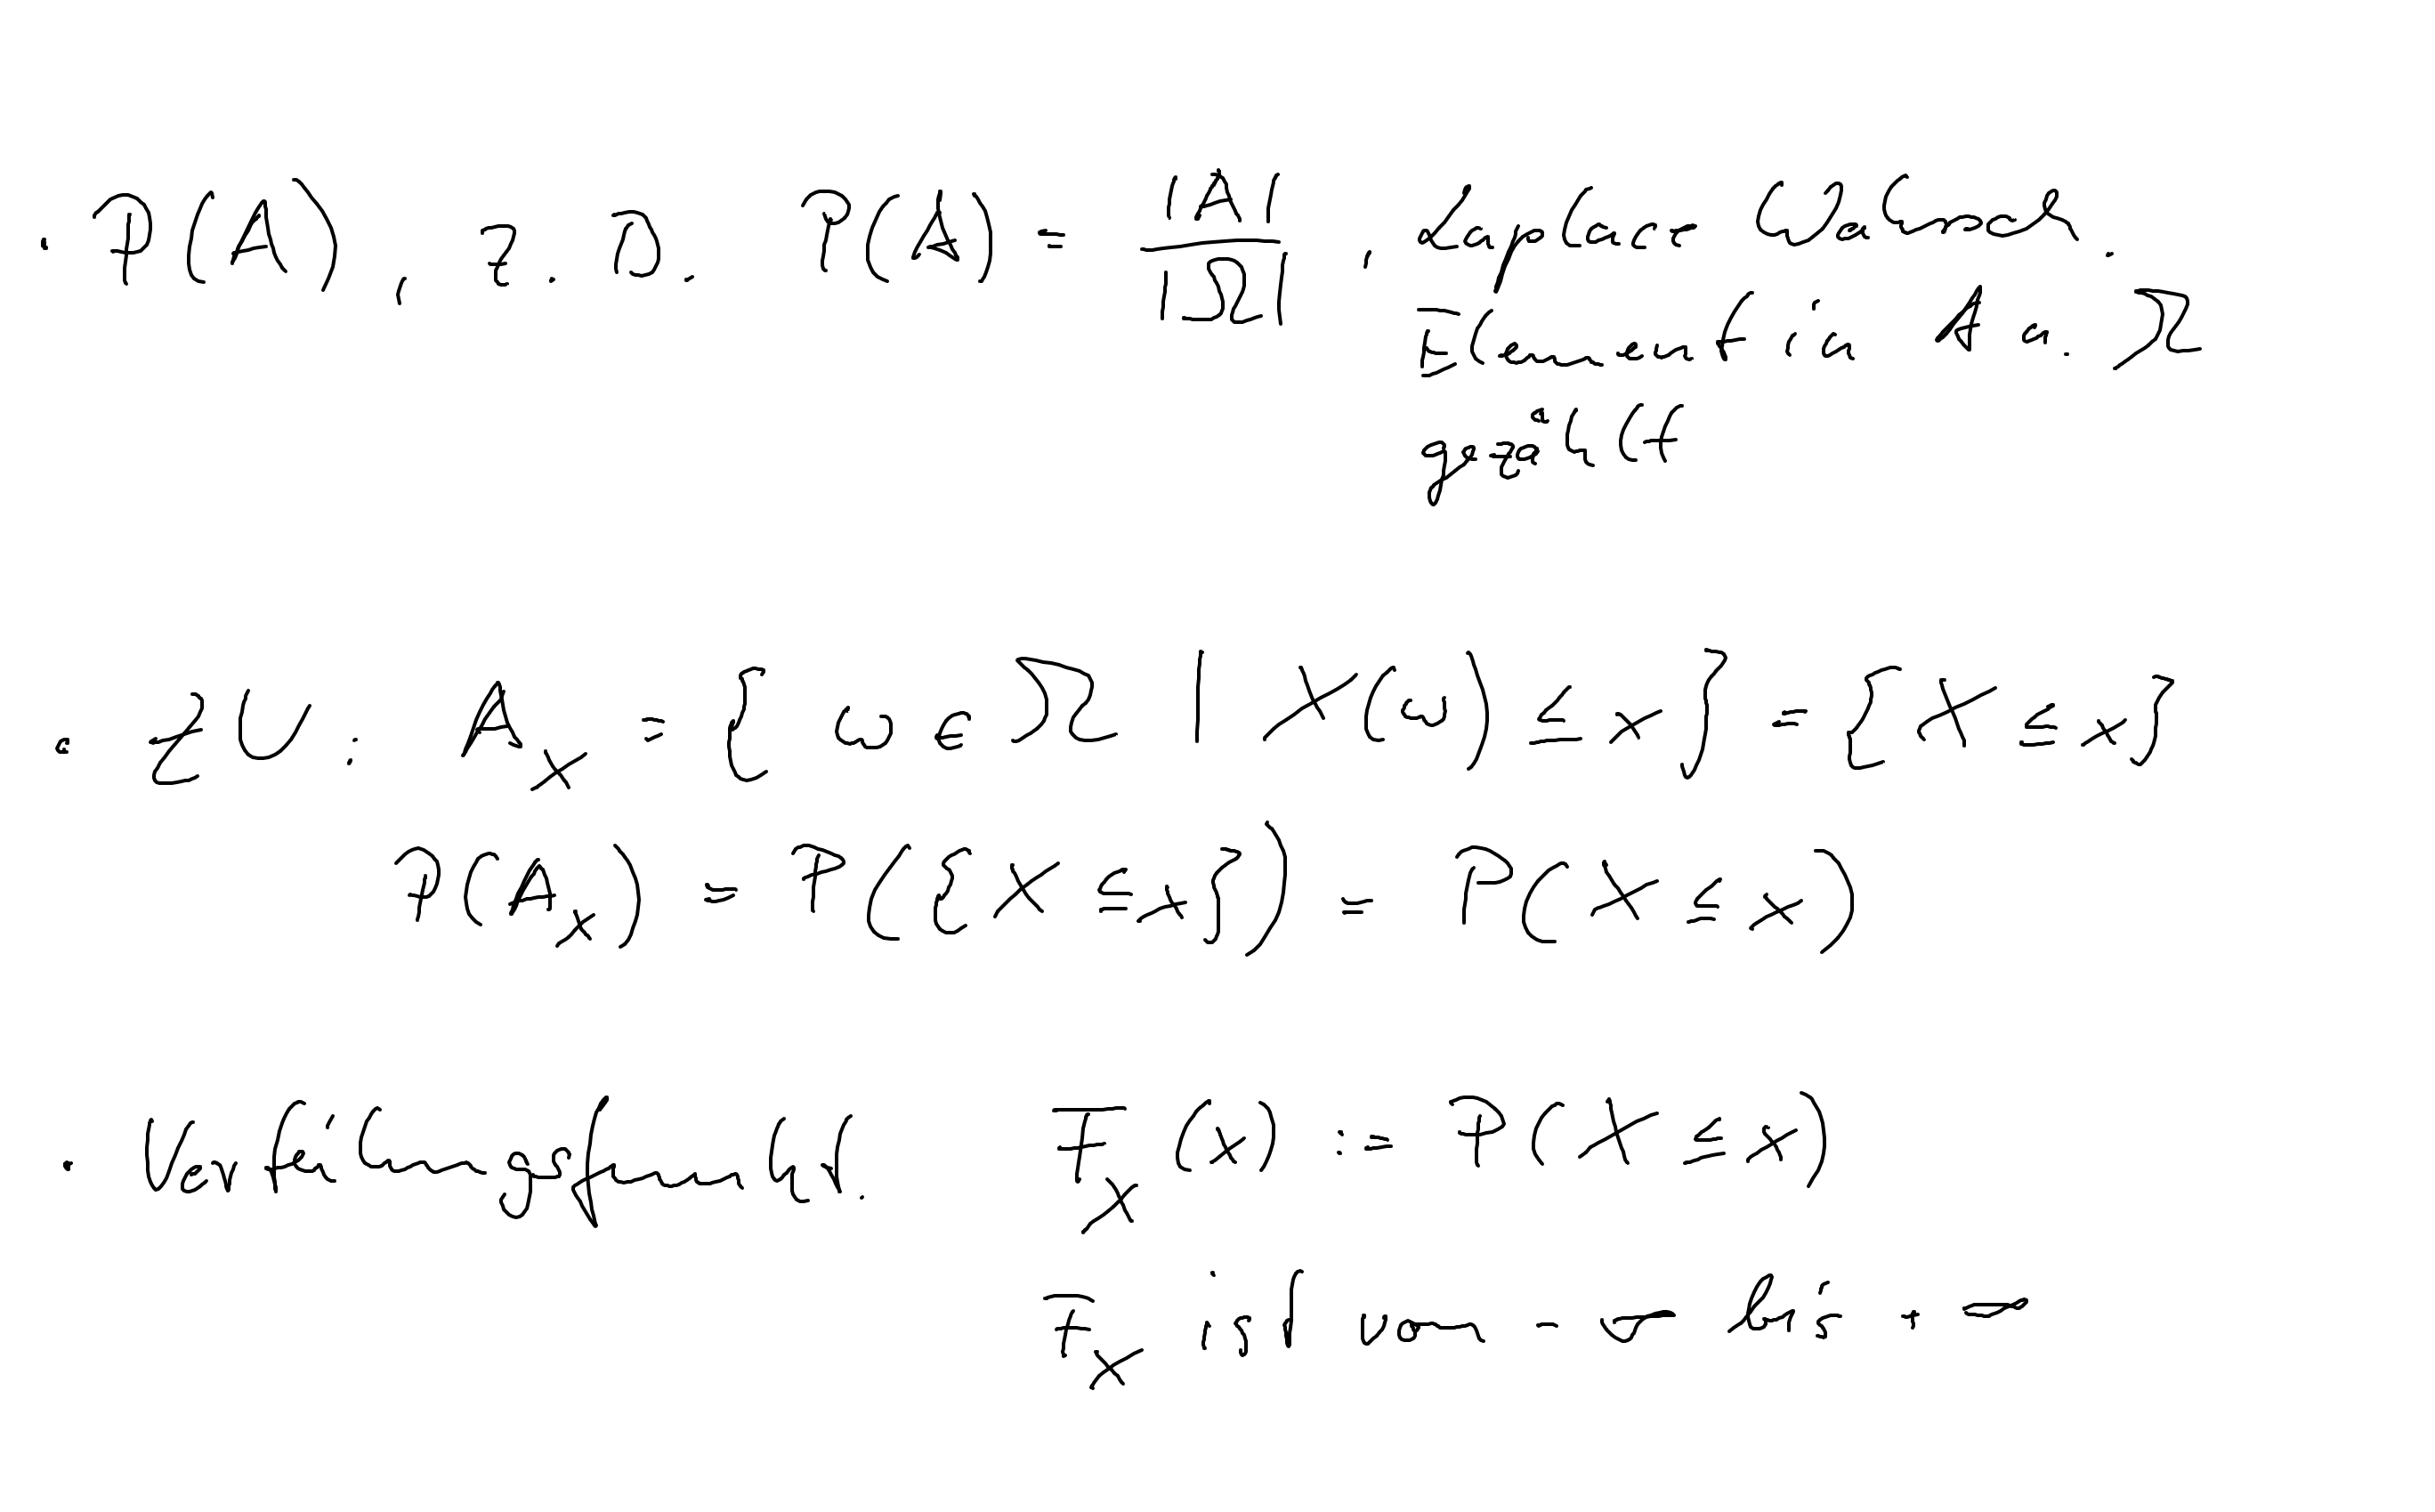 · P(A), z. B. P(A) = |A| / |Ω|, Laplace Wahrsch.
Element in A u. Ω
gezählt
· ZV: A_x = { ω ∈ Ω | X(ω) ≤ x } = { X ≤ x }
P(A_x) = P({ X ≤ x }) = P( X ≤ x )
· Verteilungsfunkt. F_X (x) := P( X ≤ x )
F_X ist von - ∞ bis + ∞